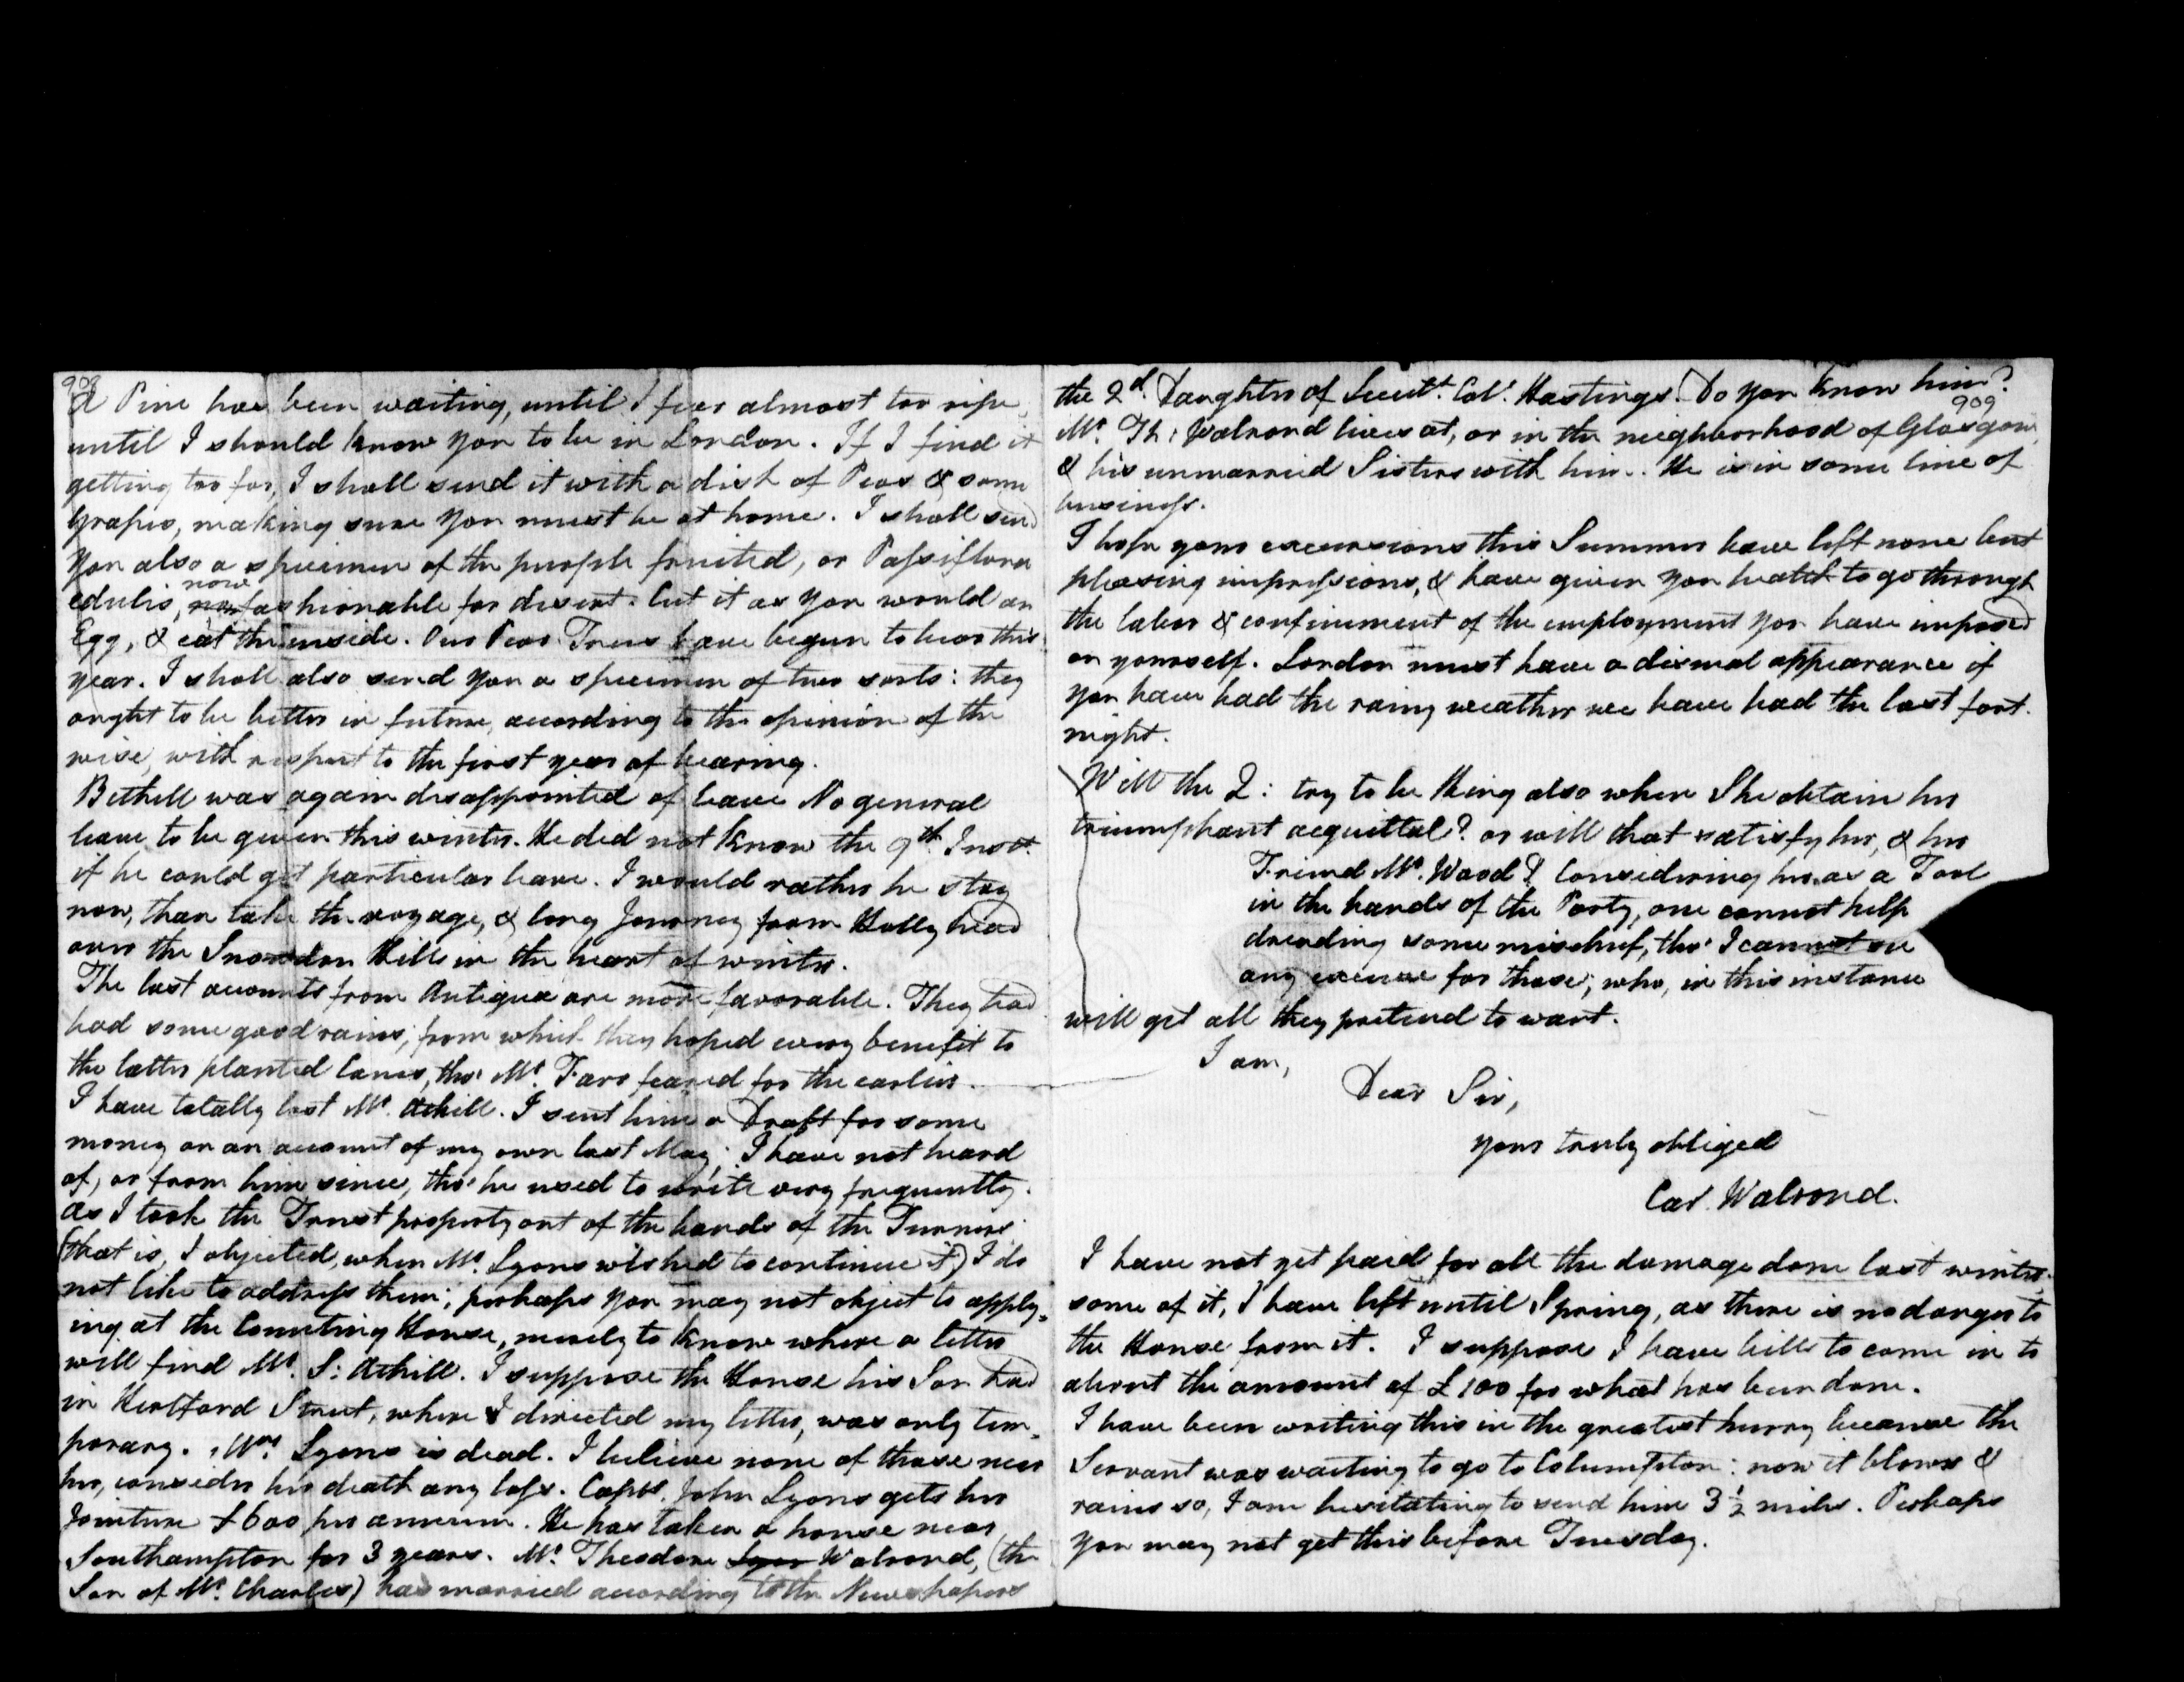 908
A Pine has been waiting, until I fear almost too ripe,
until I should know you to be in London. If I find it
getting too far, I shall send it with a dish of Peas & some
Grapes, making sure you must be at home. I shall send
you also a specimen of the purple fruited, or Passiflora
now
edulis, fashionable for desert. Cut it as you would an
Egg, & eat the inside. Our Pear Trees have begun to bear this
year. I shall also send you a specimen of two sorts: they
ought to be better in future, according to the opinion of the
wise, with respect to the first year of bearing.
Bethell was again disappointed of leave No general
leave to be given this winter. He did not know the 9th. Inst.
if he could get particular leave. I would rather he stay
now, than take the voyage, & long Journey from Hollyhead
over the Snowdon Hills in the heart of winter.
The last accounts from Antigua are more favorable. They had
had some good rains, from which they hoped every benefit to
the latter planted Canes, tho' Mr. feared for the earlier.
I have totally lost Mr. Athill. I sent him a Draft for some
money on an account of my own last May; I have not heard
of, or from him since, tho' he used to write very frequently.
As I took the Trust property out of the hands of the Turners
(that is, I objected, when Mr. Lyons wished to continue it) I do
not like to address them; perhaps you may not object to apply-
ing at the Counting House, merely to know where a letter
will find Mr. S: Athill. I suppose the House his Son had
in Hertford Street, where I directed my letter, was only tem-
porary. Mrs. Lyons is dead. I believe none of those near
her, consider her death any loss. Captn. John Lyons gets her
Jointure £600 per annum. He has taken a house near
Southampton for 3 years. Mr. Theodore Lyon Walrond, (the
Son of Mr. Charles) has married according to the Newspapers
the 2d. Daughter of Lieutt. Coll. Hastings. Do you know him?
909
Mr. Th: Walrond lives at, or in the neighborhood of Glasgow,
& his unmarried Sisters with him. He is in some line of
business.
I hope your excursions this Summer have left none but
pleasing impressions, & have given you health to go through
the labor & confinement of the employment you have imposed
on yourself. London must have a dismal appearance if
you have had the rainy weather we have had the last fort-
night.
Will the Q: try to be King also when She obtain her
triumphant acquittal? or will that satisfy her, & her
Friend Mr. Wood? Considering her as a Tool
in the hands of the Party, one cannot help
dreading some mischief, tho' I cannot see
any excuse for those, who, in this instance
will get all they pretend to want.
I am,
Dear Sir,
yours truly obliged
Car. Walrond.
I have not yet paid for all the damage done last winter.
some of it, I have left until Spring, as there is no danger to
the House from it. I suppose I have bills to come in to
about the amount of £100 for what has been done.
I have been writing this in the greatest hurry because the
Servant was waiting to go to Columpton: now it blows &
rains so, I am hesitating to send him 3½ miles. Perhaps
you may not get this before Tuesday.